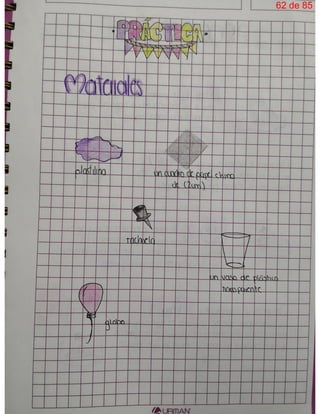 62 de 85
PRÁCTICA
Materiales
plastilina
un cuadro de papel china
de (2cm)
tachuela
un vaso de plástico
transparente
globo
URMAN